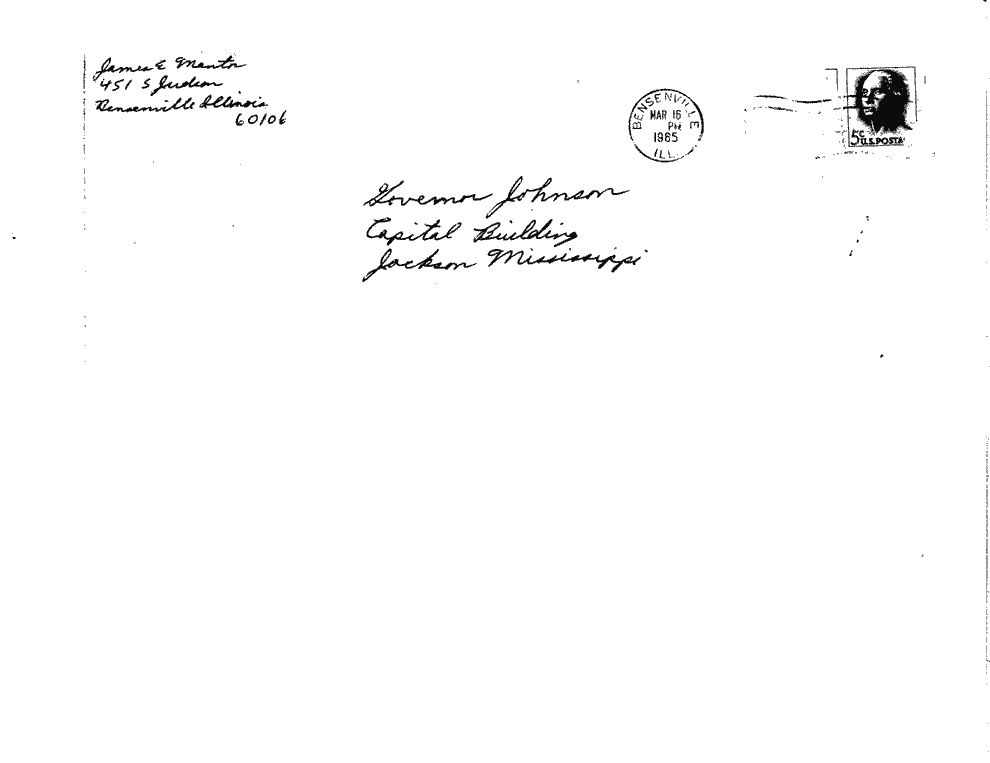 James E Mantor
451 S Judson
Bensenville Illinois
60106
BENSENVILLE
MAR 16
PM
1965
ILL.
5c U.S. POSTA
Governor Johnson
Capital Building
Jackson Mississippi